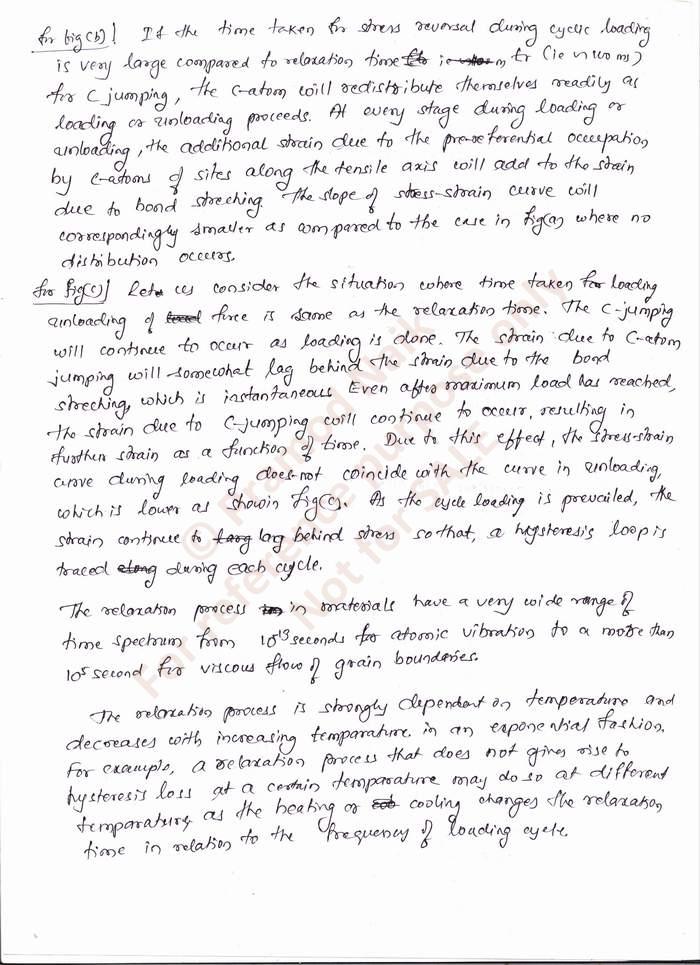 for fig(b)! If the time taken for stress reversal during cyclic loading
is very large compared to relaxation time tr (ie ≈ 200 ms)
for C jumping, the C-atom will redistribute themselves readily as
loading or unloading proceeds. At every stage during loading or
unloading, the additional strain due to the preferential occupation
by C-atoms of sites along the tensile axis will add to the strain
due to bond streching The slope of stress-strain curve will
correspondingly smaller as compared to the case in fig(a) where no
distribution occurs.
for fig(c)| Let us consider the situation where time taken for loading
unloading of force is same as the relaxation time. The C-jumping
will continue to occur as loading is done. The strain due to C-atom
jumping will somewhat lag behind the strain due to the bond
streching, which is instantaneous Even after maximum load has reached,
the strain due to C-jumping will continue to occur, resulting in
further strain as a function of time. Due to this effect, the stress-strain
curve during loading does not coincide with the curve in unloading,
which is lower as shown in fig(c). As the cycle loading is prevailed, the
strain continue to lag behind stress so that, a hysteresis loop is
traced during each cycle.
The relaxation process in materials have a very wide range of
time spectrum from 10¹³ seconds for atomic vibration to a more than
10⁵ second for viscous flow of grain boundaries.
The relaxation process is strongly dependent on temperature and
decreases with increasing temparature in an exponential fashion.
For example, a relaxation process that does not gives rise to
hysteresis loss at a certain temparature may do so at different
temparature as the heating or cooling changes the relaxation
time in relation to the frequency of loading cycle.
© Pramod Naik
For reference purpose only
Not for SALE